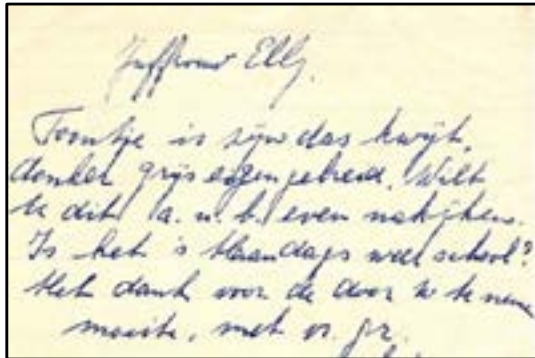 Juffrouw Elly.
Toontje is zijn das kwijt,
donker grijs eigen gebreid. Wilt
U dit a.u.b. even nakijken.
Is het 's Maandags weer school?
Met dank voor de door U te nemen
moeite, met vr. gr.